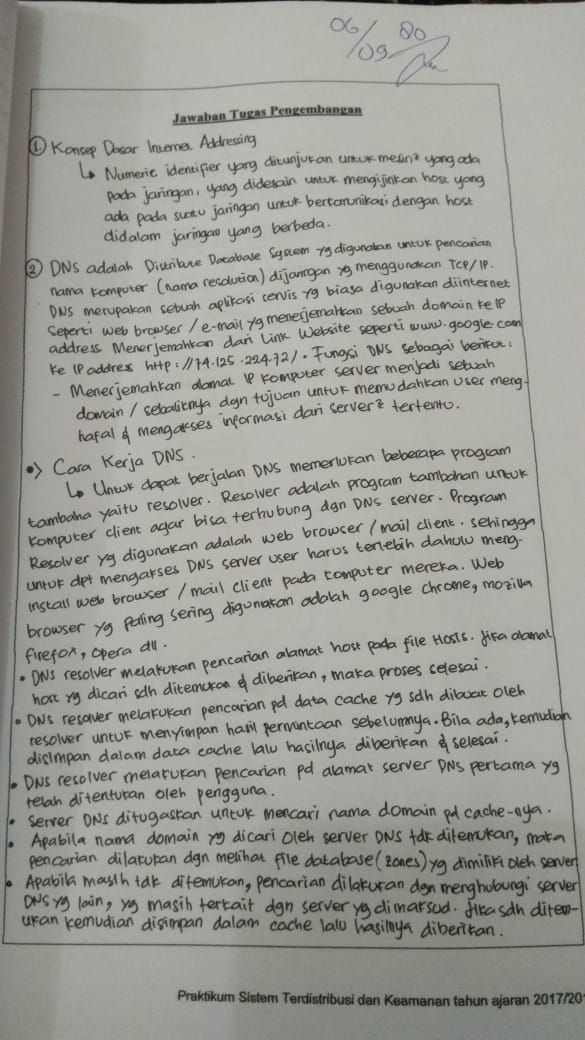 06/09 80
Jawaban Tugas Pengembangan
① Konsep Dasar Internet Addressing
↳ Numeric identifier yang ditunjukan untuk mesin² yang ada
pada jaringan, yang didesain untuk mengijinkan host yang
ada pada suatu jaringan untuk berkomunikasi dengan host
didalam jaringan yang berbeda.
② DNS adalah Distribute Database System yg digunakan untuk pencarian
nama komputer (nama resolution) dijaringan yg menggunakan TCP/IP.
DNS merupakan sebuah aplikasi servis yg biasa digunakan diinternet
seperti web browser / e-mail yg menerjemahkan sebuah domain ke IP
address. Menerjemahkan dari Link Website seperti www.google.com
ke IP addres http://74.125.224.72/. Fungsi DNS sebagai berikut:
- Menerjemahkan alamat IP komputer server menjadi sebuah
domain / sebaliknya dgn tujuan untuk memudahkan user meng-
hafal & mengakses informasi dari server² tertentu.
•) Cara Kerja DNS.
↳ Untuk dapat berjalan DNS memerlukan beberapa program
tambaha yaitu resolver. Resolver adalah program tambahan untuk
komputer client agar bisa terhubung dgn DNS server. Program
Resolver yg digunakan adalah web browser / mail client. sehingga
untuk dpt mengakses DNS server user harus terlebih dahulu meng-
install web browser / mail client pada komputer mereka. Web
browser yg paling sering digunakan adalah google chrome, mozilla
firefox, opera dll.
• DNS resolver melakukan pencarian alamat host pada file Hosts. Jika alamat
host yg dicari sdh ditemukan & diberikan, maka proses selesai.
• DNS resolver melakukan pencarian pd data cache yg sdh dibuat oleh
resolver untuk menyimpan hasil permintaan sebelumnya. Bila ada, kemudian
disimpan dalam data cache lalu hasilnya diberikan & selesai.
• DNS resolver melakukan pencarian pd alamat server DNS pertama yg
telah ditentukan oleh pengguna.
• Server DNS ditugaskan untuk mencari nama domain pd cache-nya.
• Apabila nama domain yg dicari oleh server DNS tdk ditemukan, maka
pencarian dilakukan dgn melihat file database (zones) yg dimiliki oleh server
• Apabila masih tdk ditemukan, pencarian dilakukan dgn menghubungi server
DNS yg lain, yg masih terkait dgn server yg dimaksud. Jika sdh ditem-
ukan kemudian disimpan dalam cache lalu hasilnya diberikan.
Praktikum Sistem Terdistribusi dan Keamanan tahun ajaran 2017/201